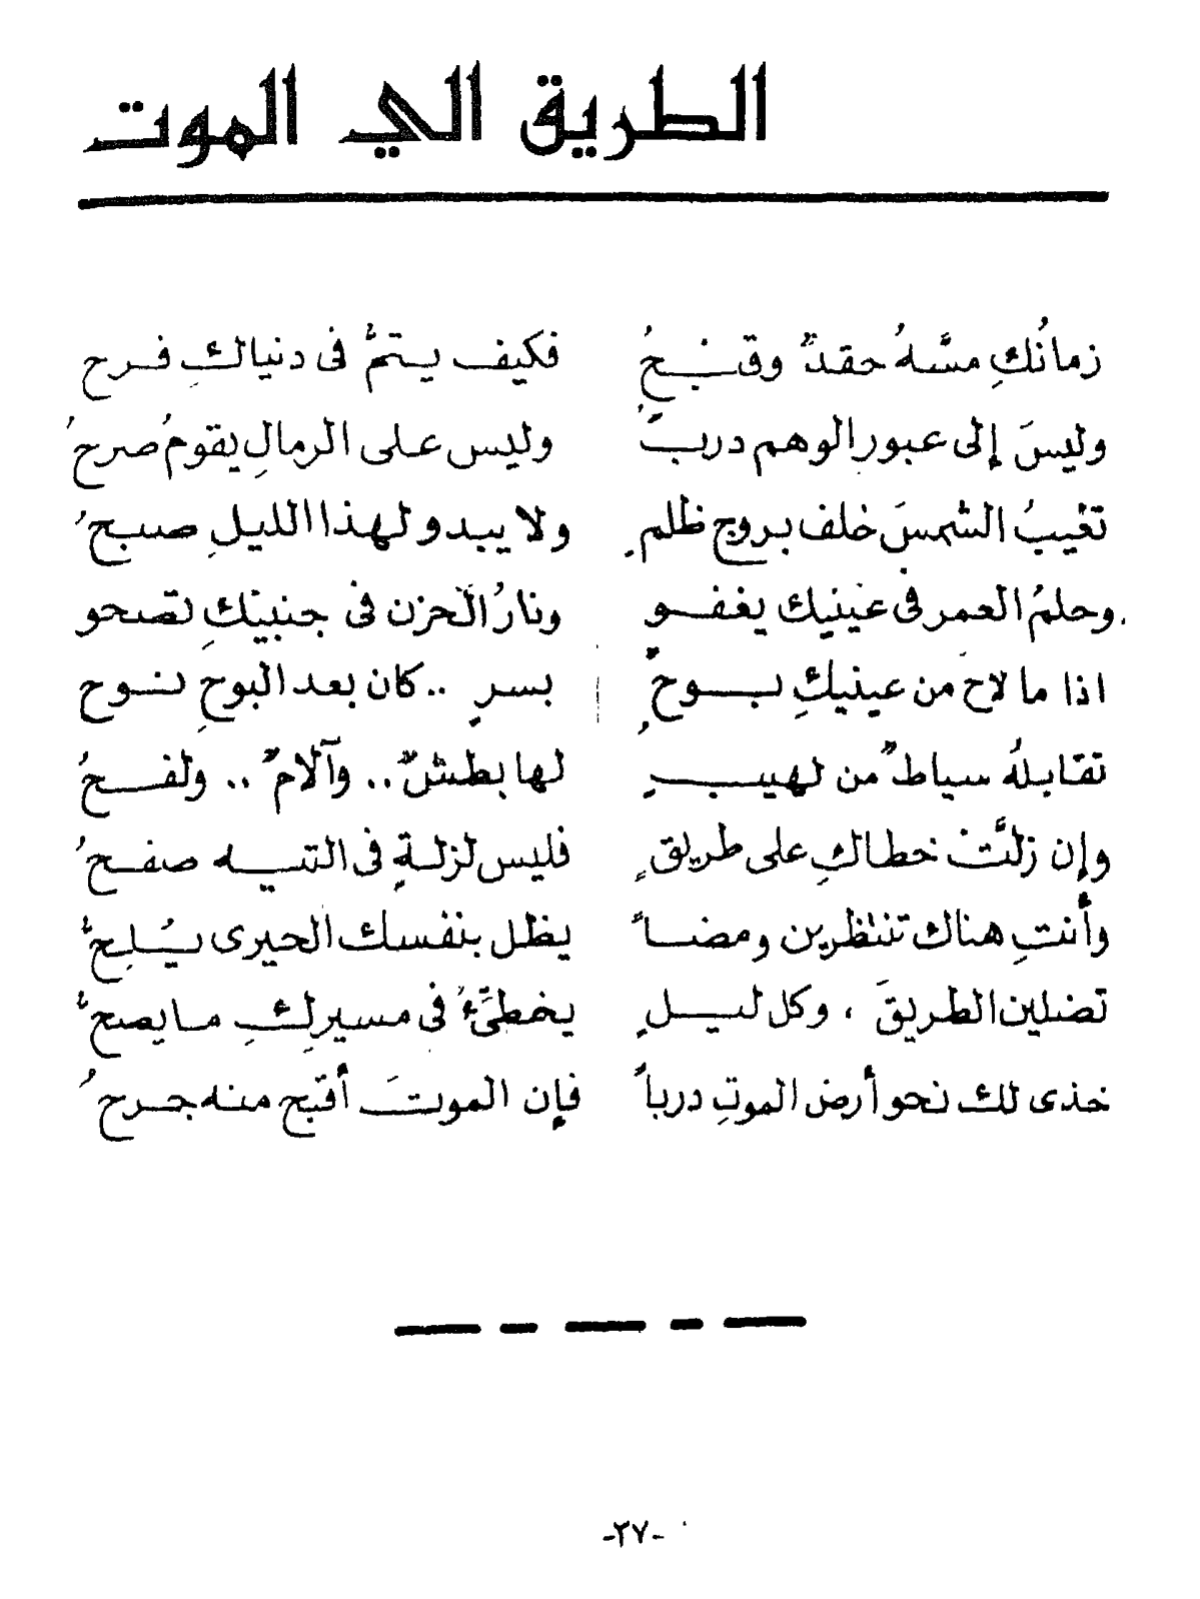 الطريق الي الموت
زمانُكِ مسَّهُ حقدٌ وقبْحُ فكيف يتمُّ فى دنياكِ فرح
وليسَ إلى عبور الوهم دربٌ وليس على الرمالِ يقومُ صرحُ
تغيبُ الشمسَ خلف بروج ظلمٍ ولا يبدو لهذا الليلِ صبحُ
وحلمُ العمر فى عينيك يغفو ونارُ الحزن فى جنبيْكِ تصحو
اذا ما لاح من عينيكِ بوحٌ بسرٍ .. كان بعد البوحِ نوح
تقابلهُ سياطٌ من لهيبٍ لها بطشٌ .. وآلامٌ .. ولفحُ
وإن زلَّتْ خطاكِ على طريقٍ فليس لزلةٍ فى التيه صفحُ
وأنتِ هناك تنتظرين ومضاً يظل بنفسك الحيرى يُلِحُّ
تضلين الطريقَ ، وكل ليلٍ يخطِّىءُ فى مسيرِكِ ما يصحُّ
خذى لك نحو أرض الموتِ درباً فإن الموتَ أقبح منه جرحُ
-٢٧-